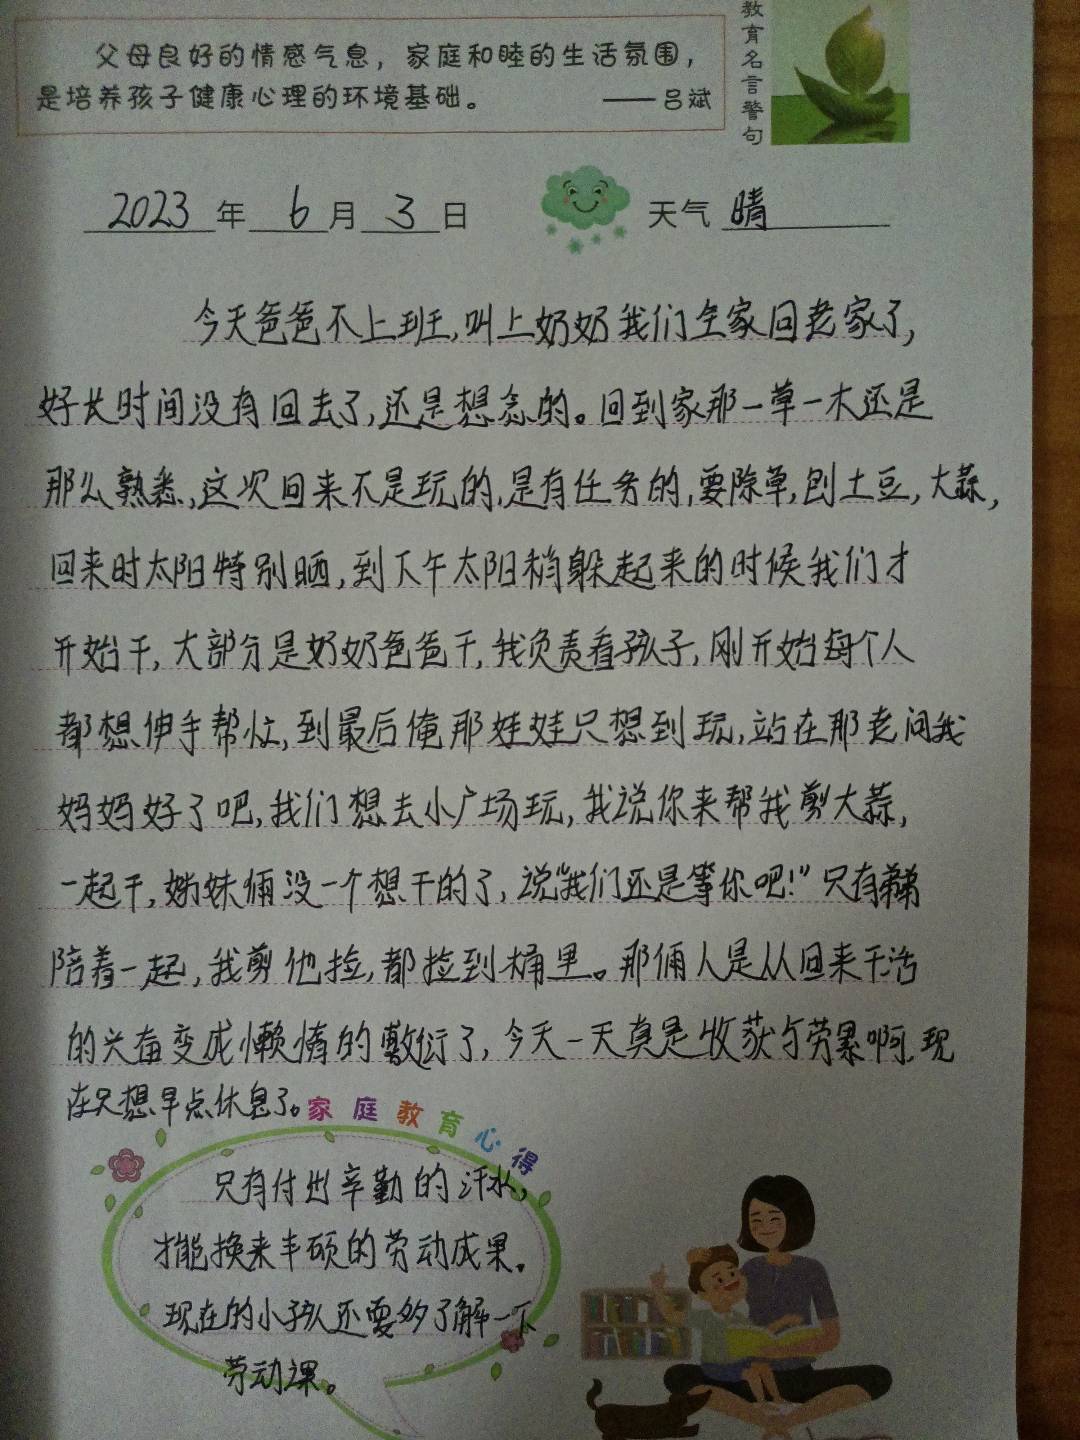 父母良好的情感气息，家庭和睦的生活氛围，
是培养孩子健康心理的环境基础。 ——吕斌
教育名言警句
2023年6月3日 天气 晴
今天爸爸不上班,叫上奶奶我们全家回老家了,
好长时间没有回去了,还是想念的。回到家那一草一木还是
那么熟悉,这次回来不是玩的,是有任务的,要除草,刨土豆,大蒜,
回来时太阳特别晒,到下午太阳稍躲起来的时候我们才
开始干,大部分是奶奶爸爸干,我负责看孩子,刚开始每个人
都想伸手帮忙,到最后俺那娃娃只想到玩,站在那老问我
妈妈好了吧,我们想去小广场玩,我说你来帮我剪大蒜,
一起干,姊妹俩没一个想干的了,说“我们还是等你吧!”只有弟弟
陪着一起,我剪他捡,都捡到桶里。那俩人是从回来干活
的兴奋变成懒惰的敷衍了,今天一天真是收获与劳累啊,现
在只想早点休息了。
家庭教育心得
只有付出辛勤的汗水,
才能换来丰硕的劳动成果。
现在的小孩还要多了解一下
劳动课。